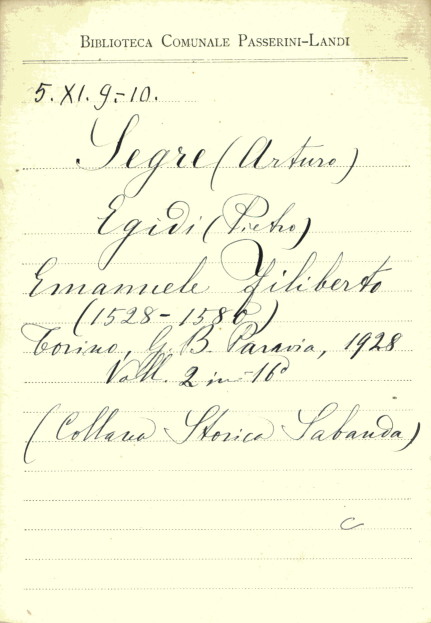 BIBLIOTECA COMUNALE PASSERINI-LANDI
5. XI. 9-10.
Segre (Arturo)
Egidi (Pietro)
Emanuele Filiberto
(1528-1580)
Torino, G. B. Paravia, 1928
Voll. 2 in-16°
(Collana Storica Sabauda)
c